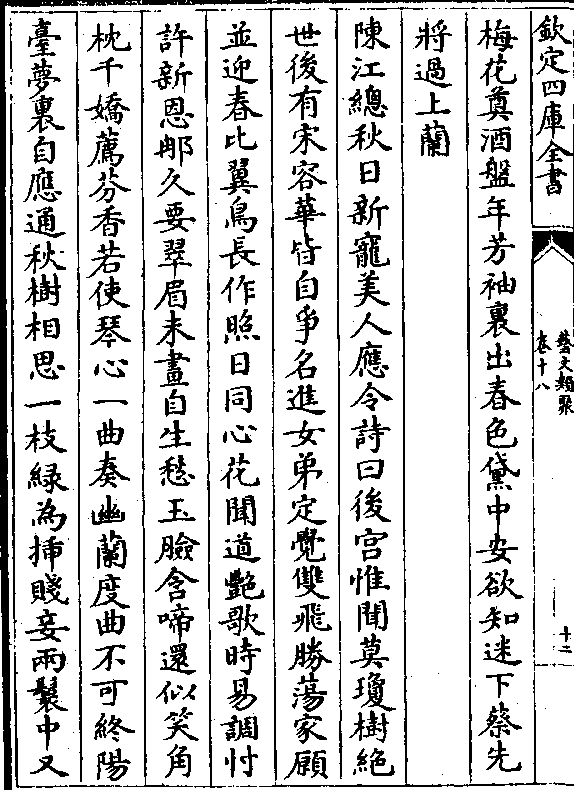 欽定四庫全書
藝文類聚
卷十八
十二
梅花奠酒盤年芳袖裏出春色黛中安欲知迷下蔡先
將過上蘭
陳江總秋日新寵美人應令詩曰後宮惟聞莫瓊樹絕
世後有宋容華皆自爭名進女弟定覺雙飛勝蕩家願
並迎春比翼鳥長作照日同心花聞道艷歌時易調忖
許新恩那久要翠眉未畫自生愁玉臉含啼還似笑角
枕千嬌薦芬香若使琴心一曲奏幽蘭度曲不可終陽
臺夢裏自應通秋樹相思一枝緑為揷賤妾兩鬟中又